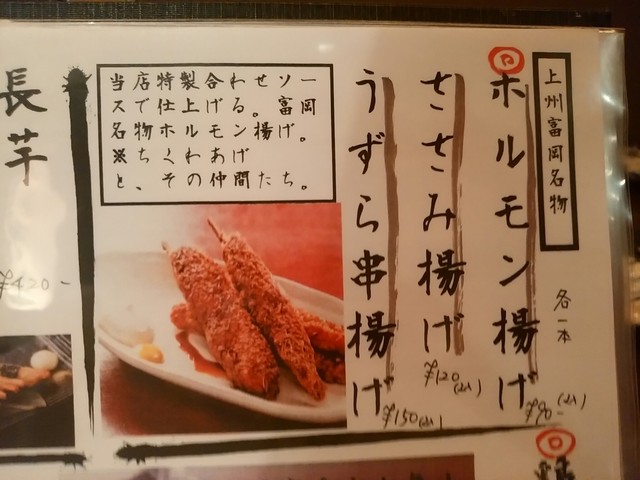 上州富岡名物
各一本
ホルモン揚げ
¥90-
ささみ揚げ
¥120
うずら串揚げ
¥150
当店特製合わせソー
スで仕上げる。富岡
名物ホルモン揚げ。
※ちくわあげ
と、その仲間たち。
長芋
¥420-